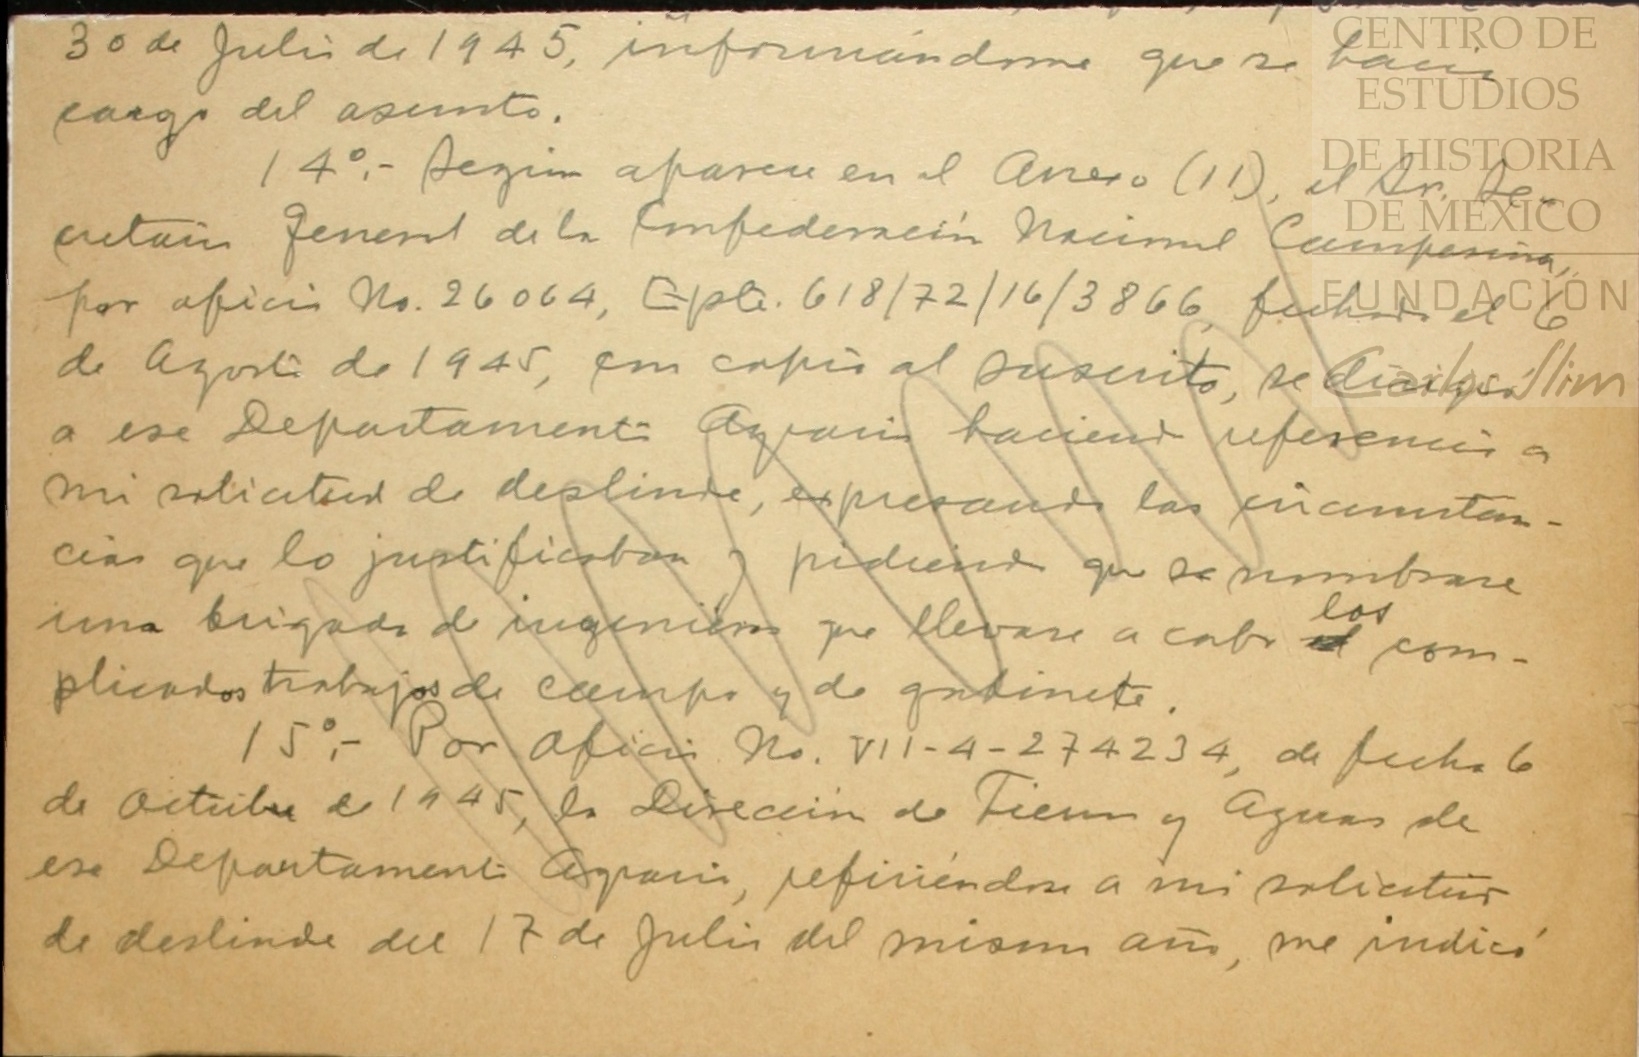 30 de Julio de 1945, informándome que se hacía
cargo del asunto.
14º.- Según aparece en el Anexo (11), el Sr. Se-
cretario General de la Confederación Nacional Campesina,
por oficio No. 26064, Expte. 618/72/16/3866, fechado el 6
de Agosto de 1945, con copia al suscrito, se dirigió
a ese Departamento Agrario haciendo referencia a
mi solicitud de deslinde, expresando las circunstan-
cias que lo justificaban y pidiendo que se nombrase
una brigada de ingenieros que llevase a cabo los com-
plicados trabajos de campo y de gabinete.
15º.- Por oficio No. VII-4-274234, de fecha 6
de Octubre de 1945, la Dirección de Tierras y Aguas de
ese Departamento Agrario, refiriéndose a mi solicitud
de deslinde del 17 de Julio del mismo año, me indicó
CENTRO DE
ESTUDIOS
DE HISTORIA
DE MÉXICO
FUNDACIÓN
Carlos Slim